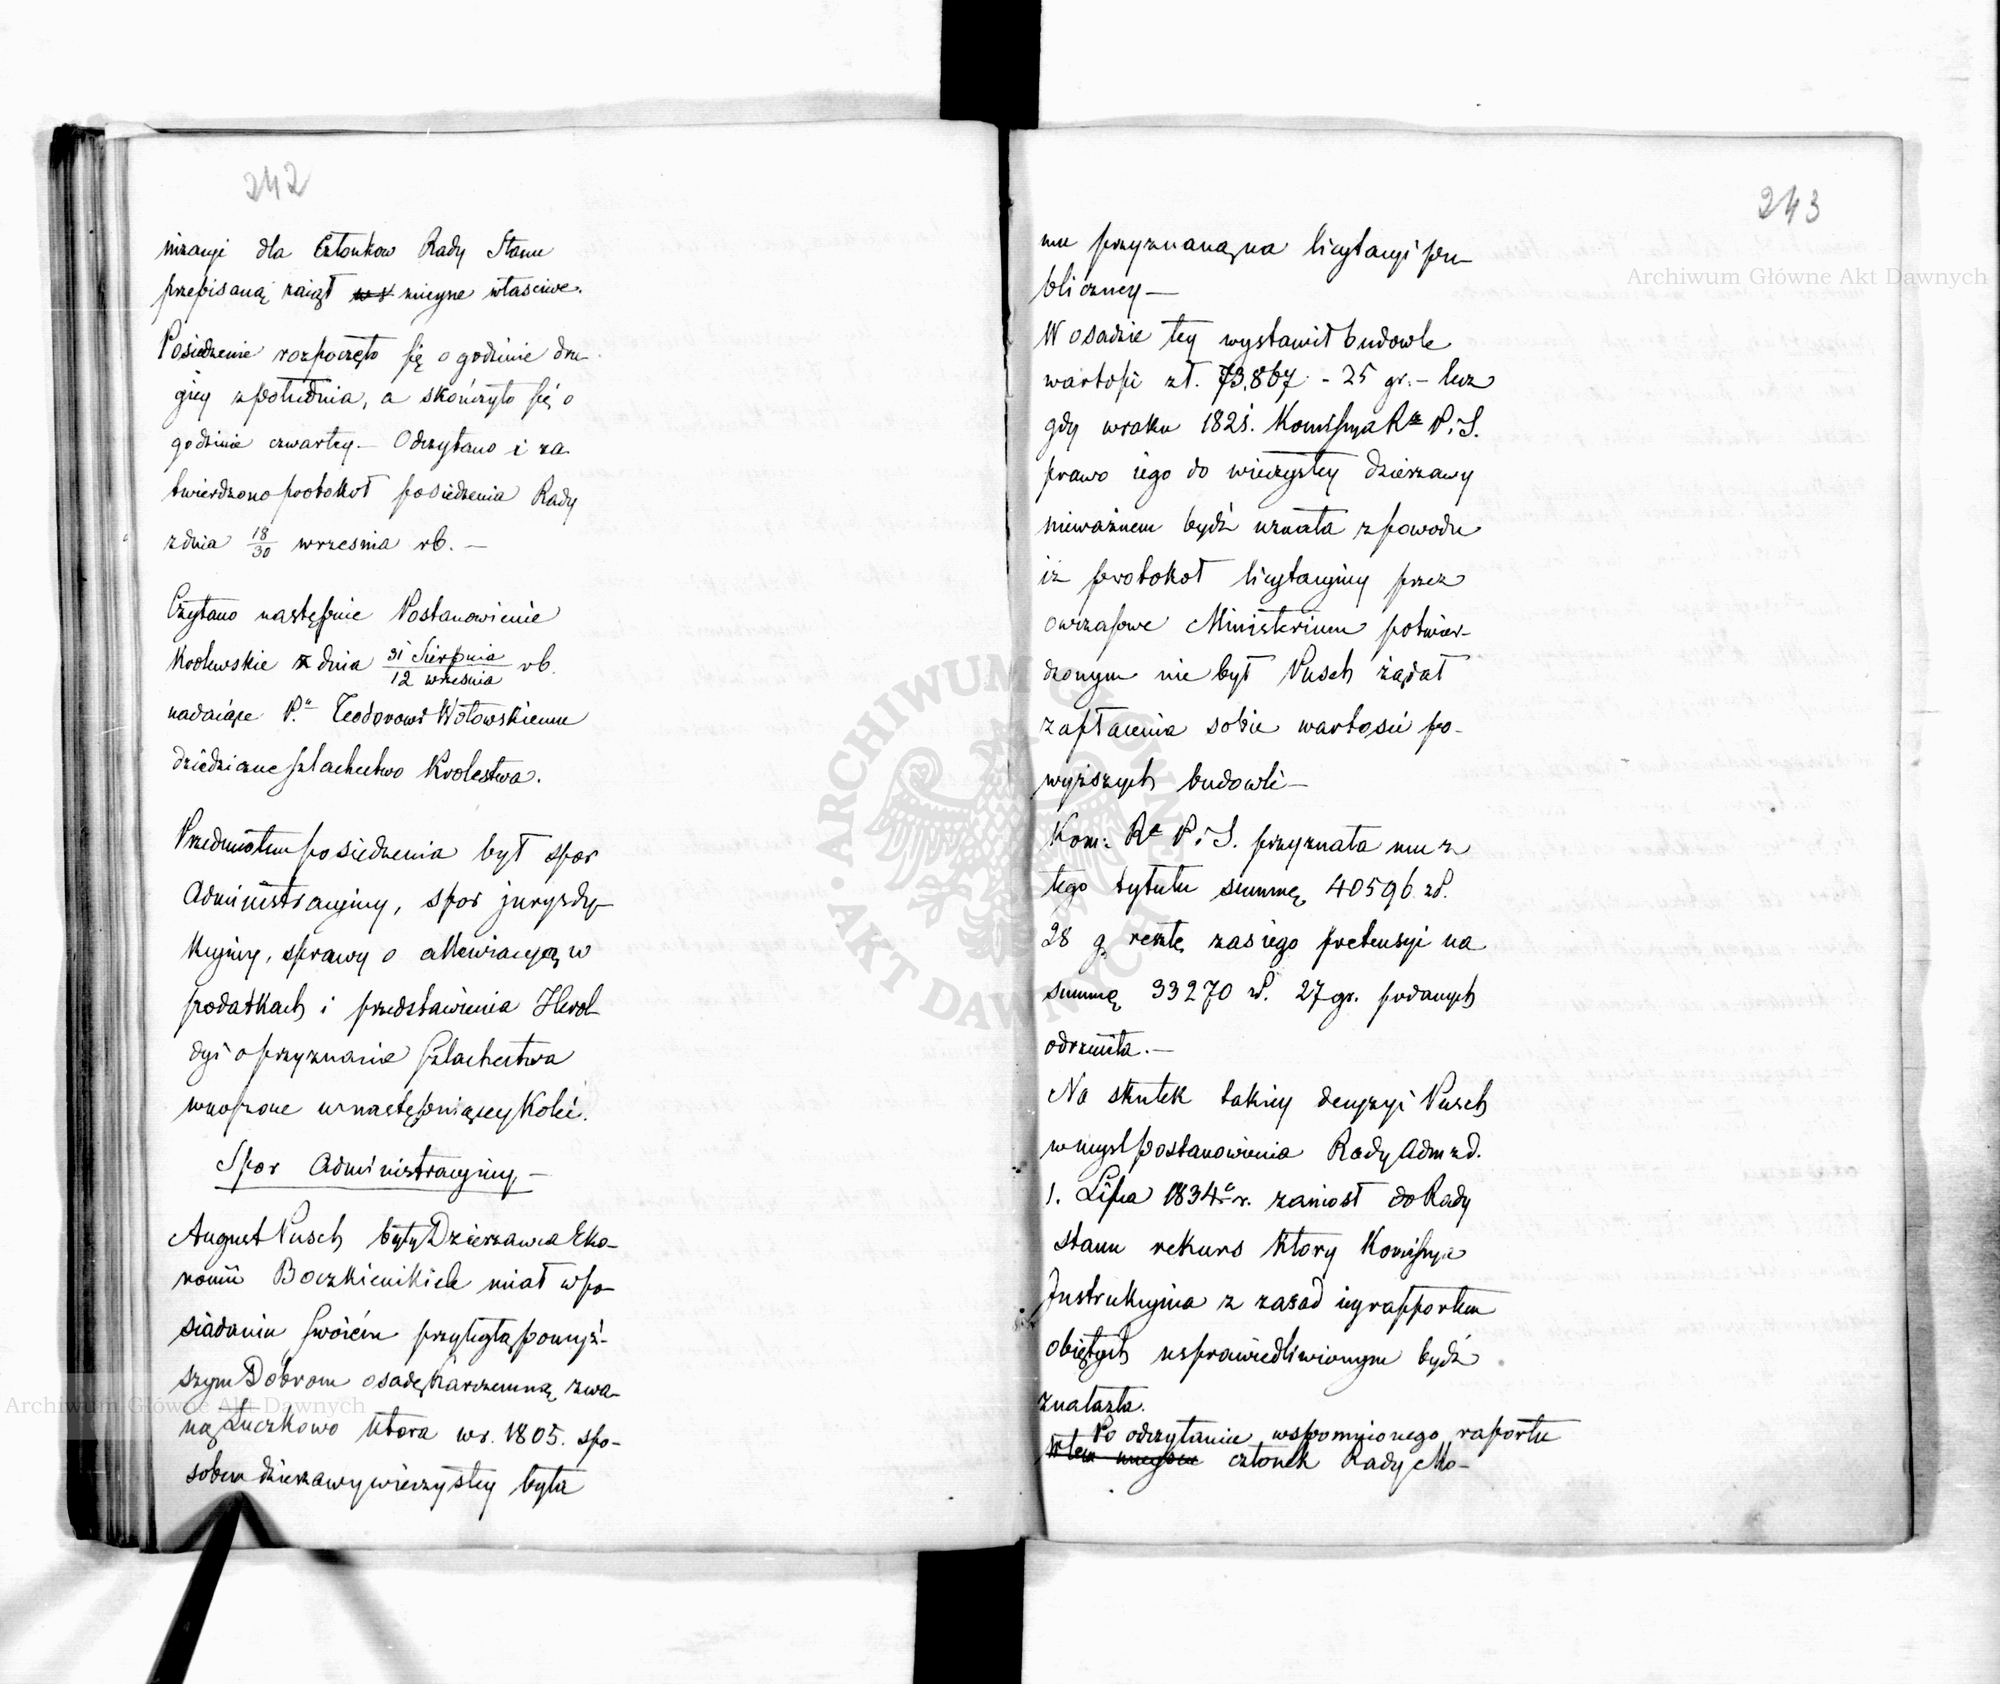 242
nizacyi dla Członkow Rady Stanu
przepisaną zaiął mieysce właściwe.
Posiedzenie rozpoczęło się o godzinie dru-
giey z południa, a skończyło się o
godzinie czwartey. — Odczytano i za
twierdzono protokoł posiedzenia Rady
z dnia 18/30 września rb. —
Czytano następnie Postanowienie
Krolewskie z dnia 31 Sierpnia/12 września rb.
nadaiące P.u Teodorowi Wołowskiemu
dziedziczne szlachectwo Krolestwa.
Przedmiotem posiedzenia był spor
Administracyiny, spor jurysdy-
kcyiny, sprawy o allewiacyą w
podatkach i przedstawienia Herol
dyi o przyznanie szlachectwa
wnoszone w następuiącey kolei.
Spor Administracyiny, —
August Pusch były Dzierzawca Eko-
nomii Boczkienickiele miał w po-
siadaniu swoiem przyległą powyż-
szym Dobrom osadę karczemną zwa-
ną Łuczkowo ktora w r. 1805. spo-
sobem dzierzawy wieczystey była
243
mu przyznaną na licytacyi pu-
bliczney —
W osadzie tey wystawił budowle
wartości zł. 73,867 - 25 gr. — lecz
gdy w roku 1821. Komissya R. P. i S.
prawo iego do wieczystey dzierzawy
nieważnem bydź uznała z powodu
iz protokoł licytacyiny przez
owczasowe Ministerium potwier-
dzonym nie był Pusch żądał
zapłacenia sobie wartosci po-
wyższych budowli —
Kom: Ra P. i S. przyznała mu z
tego tytułu summę 40596 zł.
28 g. resztę zaś iego pretensyi na
summę 33270 zł. 27 gr. podanych
odrzuciła. —
Na skutek takiey decyzyi Pusch
w mysl postanowienia Rady Adm z d.
1. Lipca 1834 r. zaniosł do Rady
Stanu rekurs ktory Komissya
Instrukcyina z zasad iey rapportem
obiętych usprawiedliwionym bydź
znalazła.
Po odczytaniu wspomnionego raportu
W tem mieyscu członek Rady Mo-
Archiwum Główne Akt Dawnych
Archiwum Główne Akt Dawnych
ARCHIWUM GŁÓWNE AKT DAWNYCH